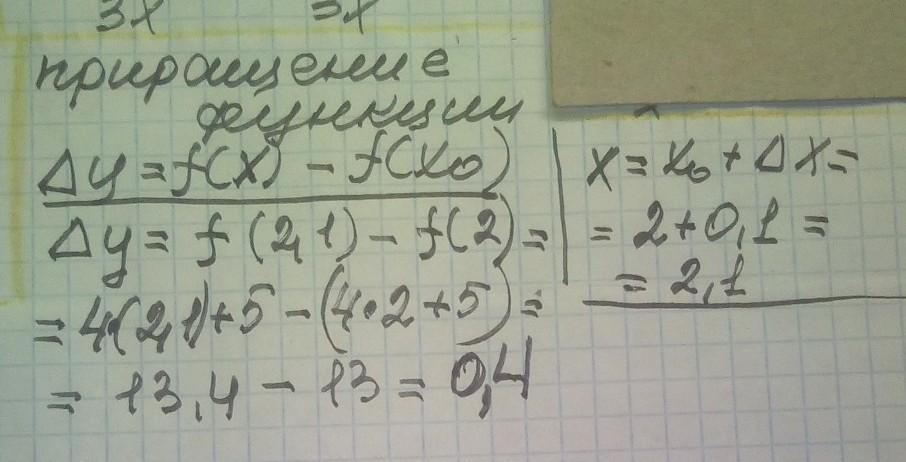 3x 3x
приращение
функции
Δy = f(x) - f(x₀)
Δy = f(2,1) - f(2) =
= 4·(2,1) + 5 - (4·2 + 5) =
= 13,4 - 13 = 0,4
x = x₀ + Δx =
= 2 + 0,1 =
= 2,1